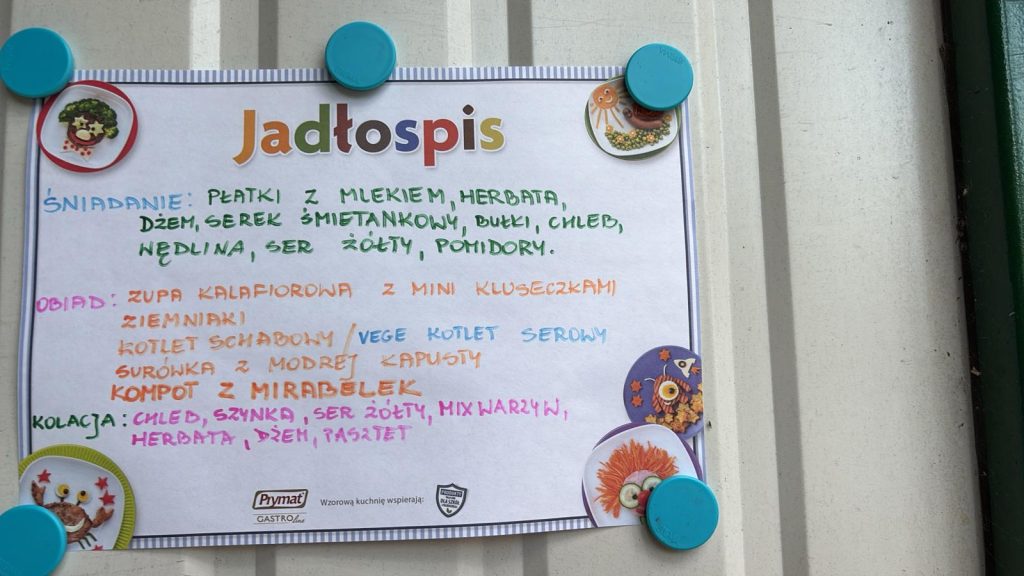 Jadłospis
ŚNIADANIE: PŁATKI Z MLEKIEM, HERBATA,
DŻEM, SEREK ŚMIETANKOWY, BUŁKI, CHLEB,
WĘDLINA, SER ŻÓŁTY, POMIDORY.
OBIAD: ZUPA KALAFIOROWA Z MINI KLUSECZKAMI
ZIEMNIAKI
KOTLET SCHABOWY / VEGE KOTLET SEROWY
SURÓWKA Z MODREJ KAPUSTY
KOMPOT Z MIRABELEK
KOLACJA: CHLEB, SZYNKA, SER ŻÓŁTY, MIX WARZYW,
HERBATA, DŻEM, PASZTET
Prymat
GASTROline
Wzorową kuchnię wspierają: